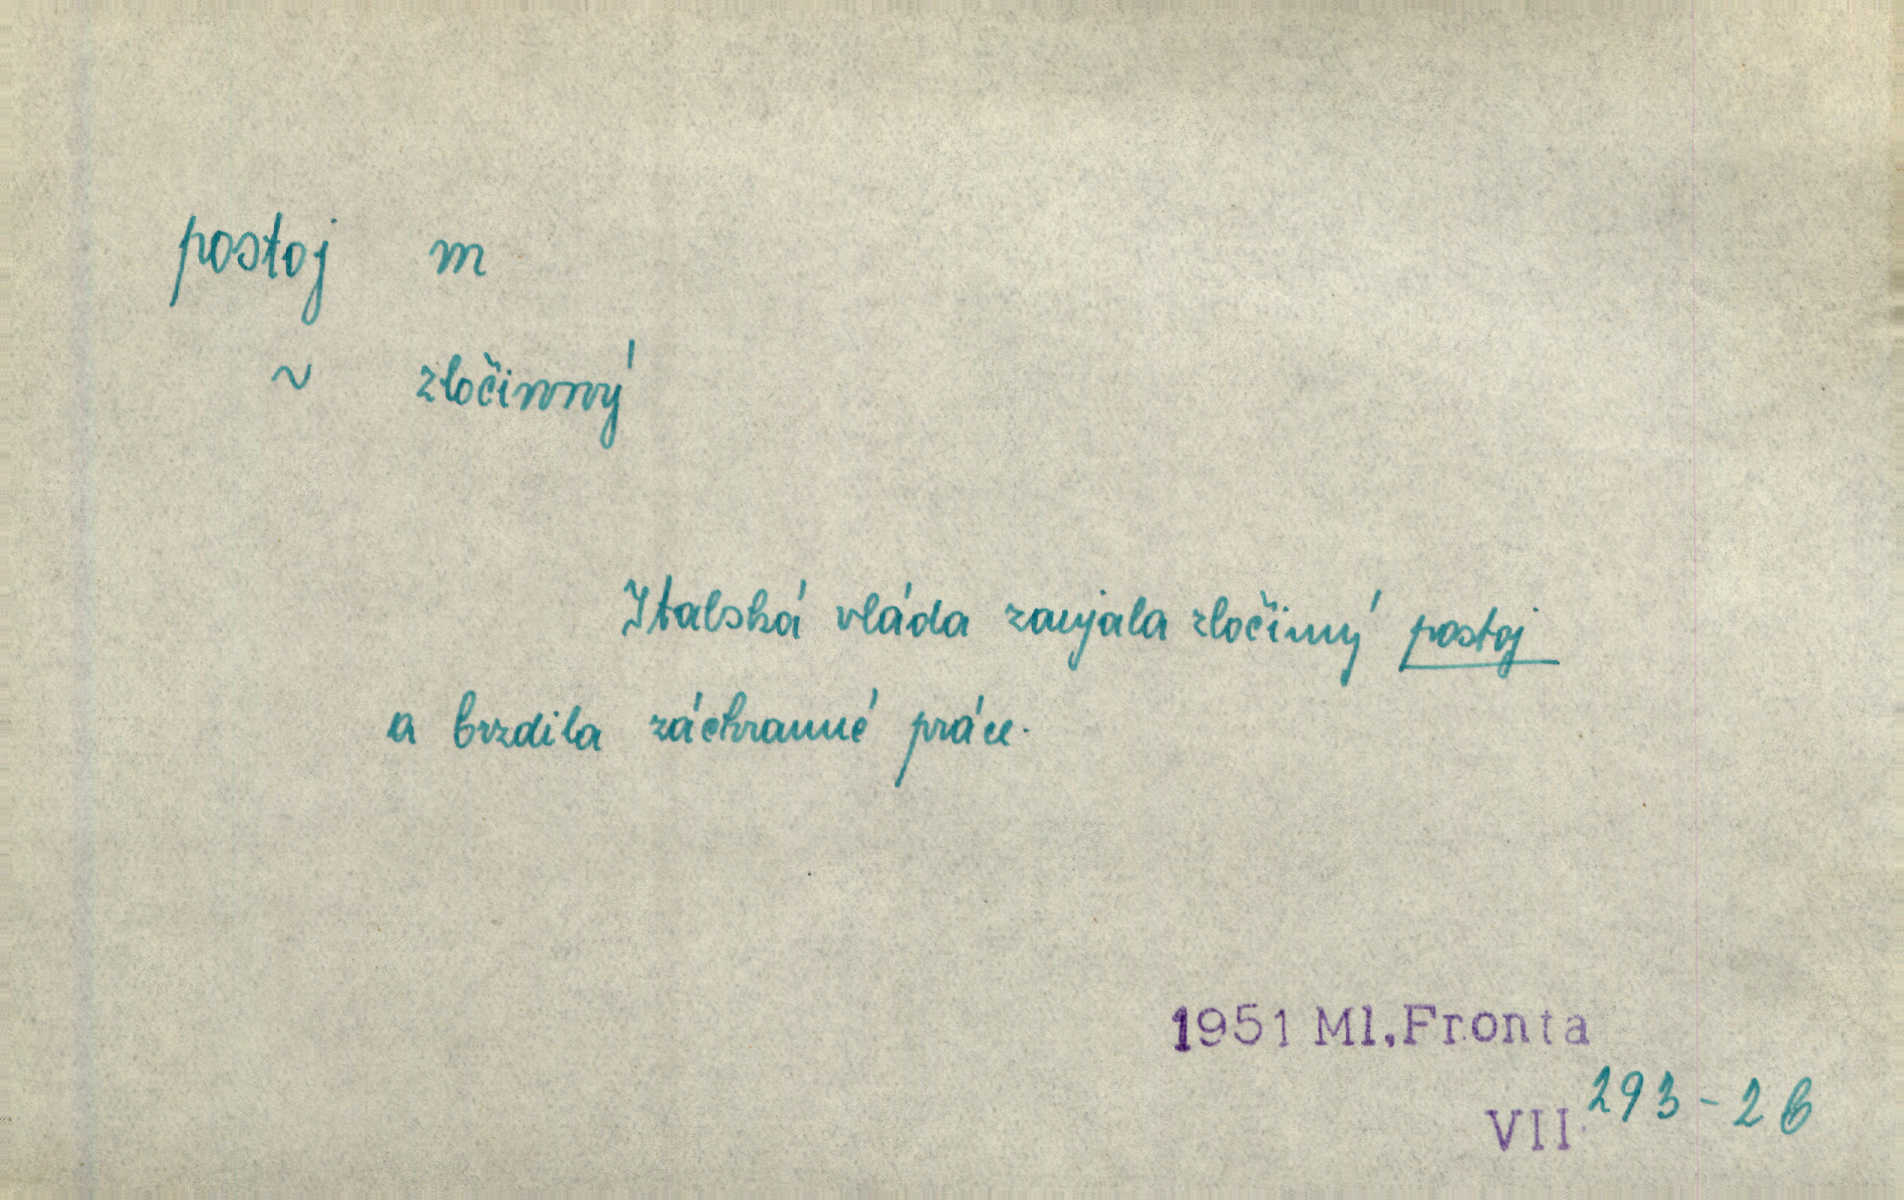 postoj m
~ zločinný
Italská vláda zaujala zločinný postoj
a brzdila záchranné práce.
1951 Ml.Fronta
VII 293-2b